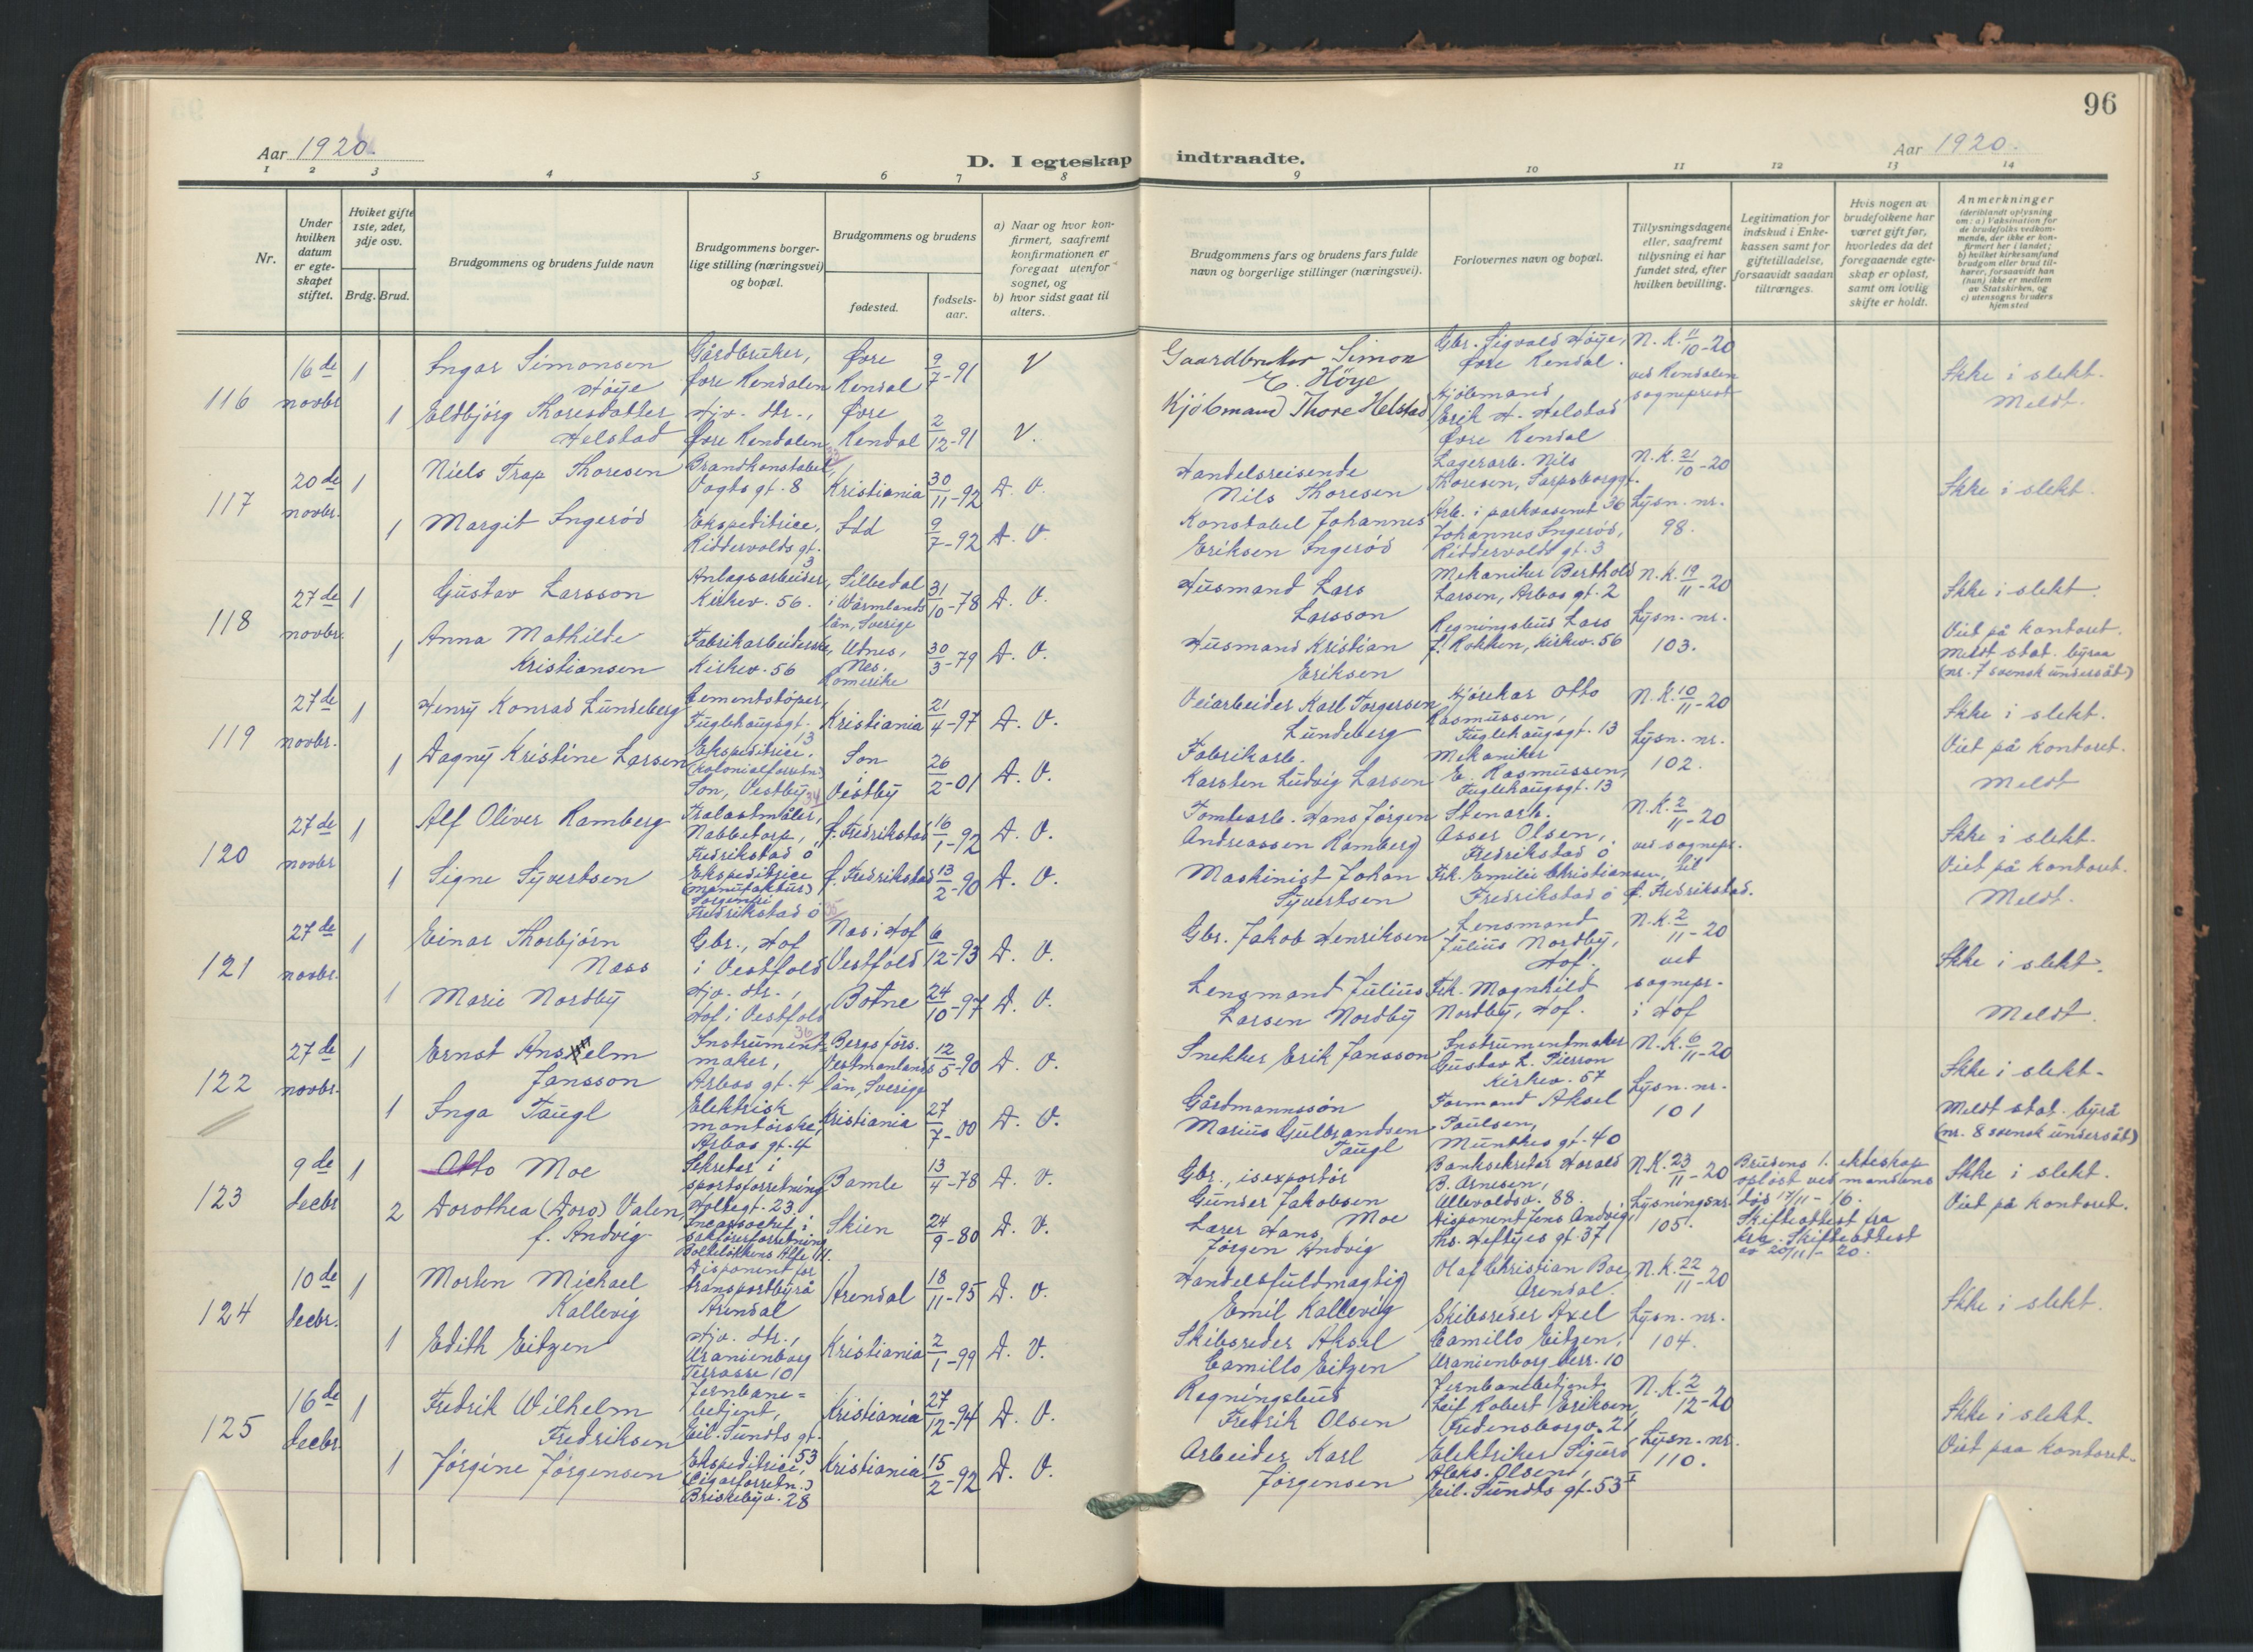 96
Aar 1920.
D. I egteskap indtraadte.
Aar 1920.
1 2 3 4 5 6 7 8 9 10 11 12 13 14
Nr.
Under hvilken datum er egte-skapet stiftet.
Hviket gifte 1ste, 2det, 3dje osv.
Brdg. Brud.
Brudgommens og brudens fulde navn
Brudgommens borger-lige stilling (næringsvei) og bopæl.
Brudgommens og brudens
fødested.
fødsels-aar.
a) Naar og hvor kon-firmert, saafremt konfirmationen er foregaat utenfor sognet, og
b) hvor sidst gaat til alters.
Brudgommens fars og brudens fars fulde navn og borgerlige stillinger (næringsvei).
Forlovernes navn og bopæl.
Tillysningsdagene eller, saafremt tillysning ei har fundet sted, efter hvilken bevilling.
Legitimation for indskud i Enke-kassen samt for giftetilladelse, forsaavidt saadan tiltrænges.
Hvis nogen av brudefolkene har været gift før, hvorledes da det foregaaende egte-skap er opløst, samt om lovlig skifte er holdt.
Anmerkninger
(deriblandt oplysning om: a) Vaksination for de brudefolks vedkom-mende, der ikke er kon-firmert her i landet; b) hvilket kirkesamfund brudgom eller brud til-hører, forsaavidt han (hun) ikke er medlem av Statskirken, og c) utensogns bruders hjemsted
116 16de novbr 1 Ingar Simonsen Höye Gårdbruker, Øvre Rendalen Øvre Rendal 9/7-91 V Gaardbruker Simon E. Höye Gbr. Sigvald Höye, Øvre Rendal. N.K. 11/10-20 ved Rendalen sogneprest Ikke i slekt. Meldt.
1 Eldbjörg Thoresdatter Helstad Hjv. dtr., Øvre Rendalen Øvre Rendal 2/12-91 V. Kjöbmand Thore Helstad Kjöbmand Erik H. Helstad Øvre Rendal
117 20de novbr. 1 Niels Trap Thoresen Brandkonstabel, Vogts gt. 8 Kristiania 30/11-92 D. V. Handelsreisende Nils Thoresen Lagerarb. Nils Thoresen, Sarpsborggt. N.K. 21/10-20 Lysn. nr. 98. Ikke i slekt.
1 Margit Ingeröd Ekspeditrice, Riddervolds gt. 3 Idd 9/7-92 D. V. Konstabel Johannes Eriksen Ingeröd Arb. i parkvesenet 36 Johannes Ingeröd, Riddervolds gt. 3
118 27de novbr. 1 Gustav Larsson Anlagsarbeider, Kirkev. 56. Silbodal i Wärmlands län, Sverige 31/10-78 D. V. Husmand Lars Larsson Mekaniker Berthold Larsen, Arbos gt. 2 N.K. 19/11-20 Lysn. nr. 103. Ikke i slekt. Viet på kontoret. Meldt stat. byraa (nr. 7 svensk undersåt)
1 Anna Mathilde Kristiansen Fabrikarbeiderske, Kirkev. 56 Udnes, Nes, Romerike 30/3-79 D. V. Husmand Kristian Eriksen Regningsbud Lars J. Rokken, Kirkev. 56
119 27de novbr. 1 Henry Konrad Lundeberg Cementstöper, Fuglehaugsgt. 13 Kristiania 21/4-97 D. V. Veiarbeider Karl Torgersen Lundeberg Kjörekar Otto Rasmussen, Fuglehaugsgt. 13 N.K. 10/11-20 Lysn. nr. 102. Ikke i slekt. Viet på kontoret. Meldt
1 Dagny Kristine Larsen Ekspeditrice, (kolonialforretn.) Son, Vestby 34 Son i Vestby 26/2-01 D. V. Fabrikarb. Karsten Ludvig Larsen Mekaniker E. Rasmussen, Fuglehaugsgt. 13
120 27de novbr 1 Alf Oliver Ramberg Trælastmåler, Nabbetorp, Fredrikstad ö f. Fredrikstad 16/1-92 D. V. Tomtearb. Hans Jörgen Andreassen Ramberg Stenarb. Asser Olsen, Fredrikstad ö N.K. 2/11-20 ved sognepr. til f. Fredrikstad. Ikke i slekt. Viet på kontoret. Meldt.
1 Signe Syvertsen Ekspeditrice (manufaktur) Fredrikstad ö 35 f. Fredrikstad 13/2-90 D. V. Maskinist Johan Syvertsen Frk. Emilie Christiansen, Fredrikstad ö
121 27de novbr. 1 Einar Thorbjörn Næss Gbr., Hof i Vestfold Næs i Hof Vestfold 6/12-93 D. V. Gbr. Jakob Henriksen Lensmand Julius Nordby, Hof. N.K. 2/11-20 ved sognepr. i Hof Ikke i slekt. Meldt.
1 Marie Nordby Hjv. dtr., Hof i Vestfold 36 Botne 24/10-97 D. V. Lensmand Julius Larsen Nordby Frk. Magnhild Nordby, Hof.
122 27de novbr. 1 Ernst Anselm Jansson Instrument=maker, Arbos gt. 4 Bergs förs. Vestmanlands län, Sverige 12/5-90 D. V. Snekker Erik Jansson Instrumentmaker Gustav L. Pierron Kirkev. 57 N.K. 6/11-20 Lysn. nr. 101 Ikke i slekt. Meldt stat. byrå (nr. 8 svensk undersåt)
1 Inga Taugl Elektrisk montörske, Arbos gt. 4 Kristiania 27/7-00 D. V. Gårdmannssön Marius Gulbrandsen Taugl Formand Aksel Paulsen, Munthes gt. 40
123 9de decbr 1 Otto Moe Sekretær i sportsforretning Holtegt. 23 Bamle 13/4-78 D. V. Gbr., isexportör Gunder Jakobsen Moe Banksekretær Harald B. Arnesen, Ullevoldsv. 88. N.K. 23/11-20 Lysningsnr. 105. Brudens 1. ekteskap oplöst ved mandens död 17/11-16. Skifteattest fra Kra. Skifteattest av 20/11-20. Ikke i slekt. Viet på kontoret.
2 Dorothea (Doro) Valen, f. Andvig Incassochef i sakförerforretning Boltelökkens Alle 11. Skien 24/9-80 D. V. Lærer Hans Jörgen Andvig Disponent Jens Andvig, Ths. Heftyes gt. 37
124 10de decbr. 1 Morten Michael Kallevig Disponent for transportbyrå Arendal Arendal 18/11-95 D. V. Handelsfuldmægtig Emil Kallevig Olaf Christian Boe, Arendal. N.K. 22/11-20 Lysn. nr. 104. Ikke i slekt.
1 Edith Eitzen Hjv. dtr., Uranienborg Terrasse 10 Kristiania 2/1-99 D. V. Skibsreder Aksel Camillo Eitzen Skibsreder Axel Camillo Eitzen, Uranienborg terr. 10
125 16de decbr. 1 Fredrik Wilhelm Fredriksen Jernbane=betjent, Eil. Sundts gt. 53 Kristiania 27/12-94 D. V. Regningsbud Fredrik Olsen Jernbanebetjent Leif Robert Eriksen, Fredensborgv. 21 N.K. 2/12-20 Lysn. nr. 110. Ikke i slekt. Viet paa kontoret.
1 Jörgine Jörgensen Ekspeditrice, (Cigarforretn.) Briskebyv. 28 Kristiania 15/2-92 D. V. Arbeider Karl Jörgensen Elektriker Sigurd Aleks. Olsen, Eil. Sundts gt. 53 I